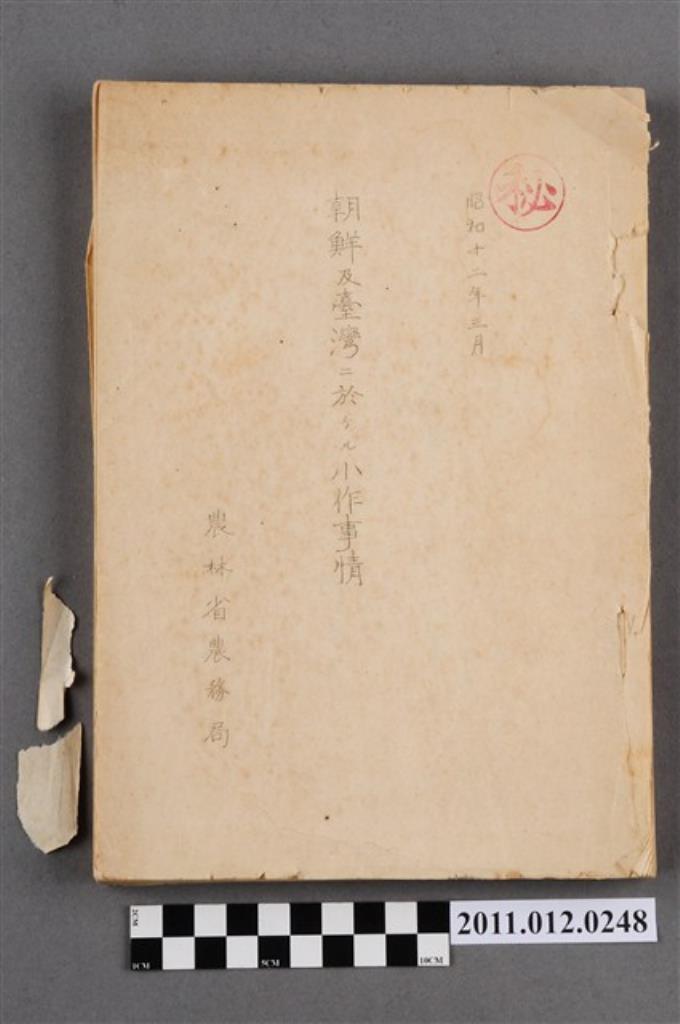 秘
昭和十二年三月
朝鮮及臺灣ニ於ケル小作事情
農林省農務局
2CM
1CM
5CM
10CM
2011.012.0248